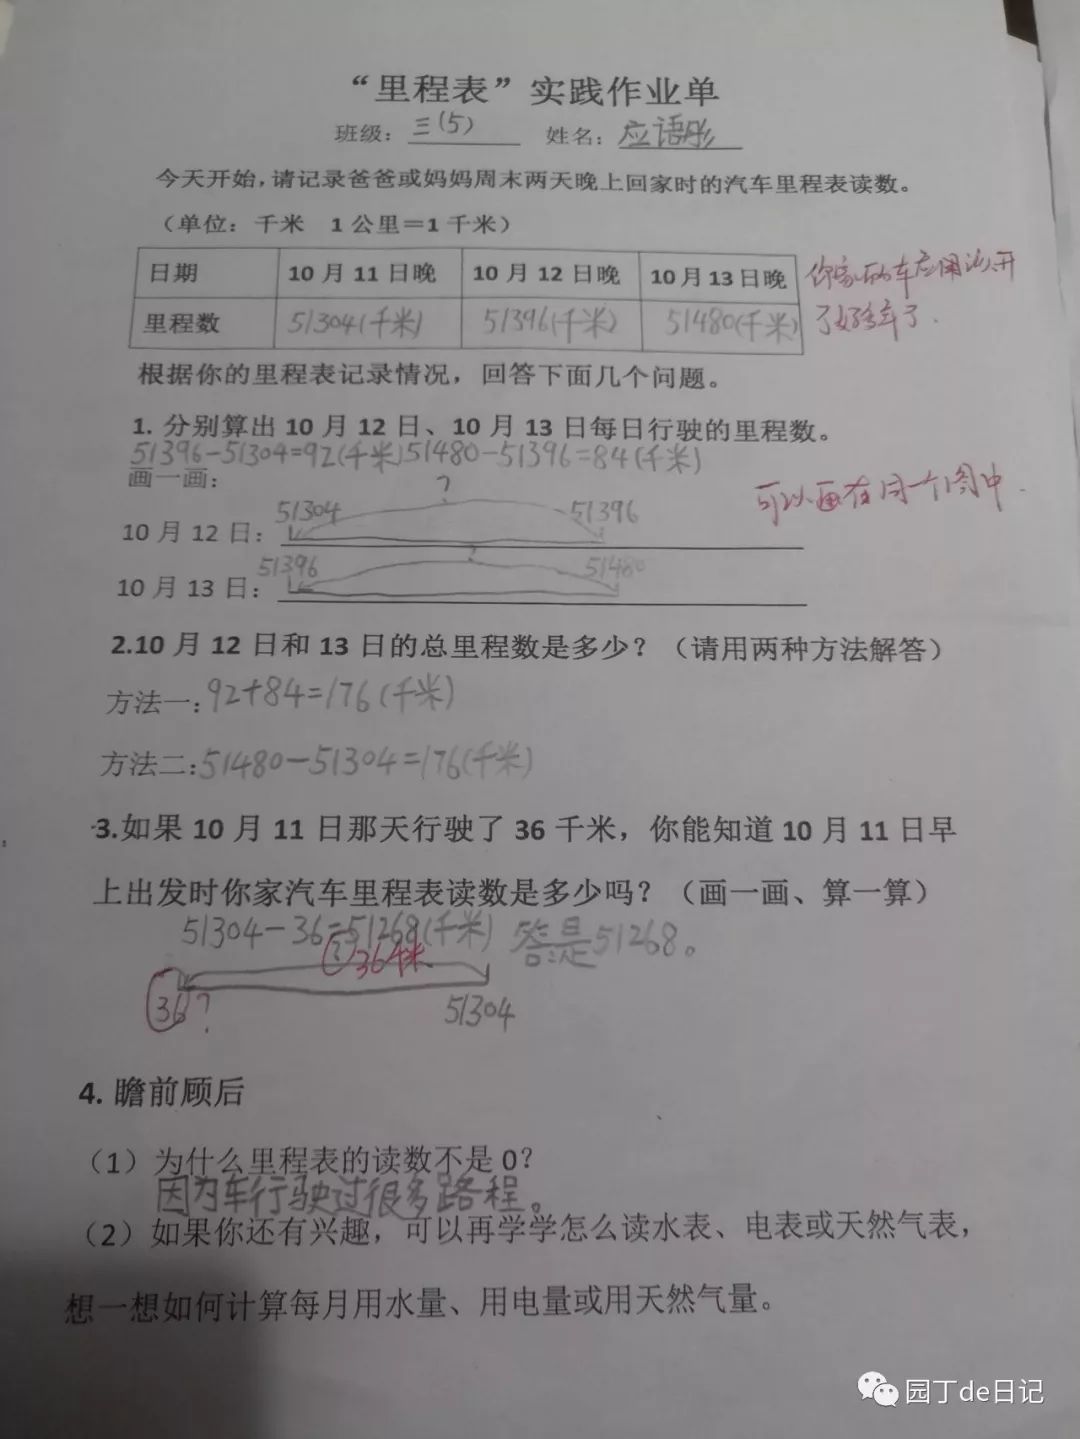 “里程表”实践作业单
班级：三(5) 姓名：应语彤
今天开始，请记录爸爸或妈妈周末两天晚上回家时的汽车里程表读数。
（单位：千米 1公里＝1千米）
日期 10月11日晚 10月12日晚 10月13日晚
里程数 51304(千米) 51396(千米) 51480(千米)
你家的车应用法开
了好多年了.
根据你的里程表记录情况，回答下面几个问题。
1. 分别算出10月12日、10月13日每日行驶的里程数。
51396-51304=92(千米) 51480-51396=84(千米)
画一画：
可以画在同一个图中.
?
51304 51396
10月12日：
?
51396 51480
10月13日：
2.10月12日和13日的总里程数是多少？（请用两种方法解答）
方法一：92+84=176(千米)
方法二：51480-51304=176(千米)
3.如果10月11日那天行驶了36千米，你能知道10月11日早
上出发时你家汽车里程表读数是多少吗？（画一画、算一算）
51304-36=51268(千米) 答:是51268。
? 36千米
36? 51304
4. 瞻前顾后
（1）为什么里程表的读数不是0？
因为车行驶过很多路程。
（2）如果你还有兴趣，可以再学学怎么读水表、电表或天然气表，
想一想如何计算每月用水量、用电量或用天然气量。
园丁de日记